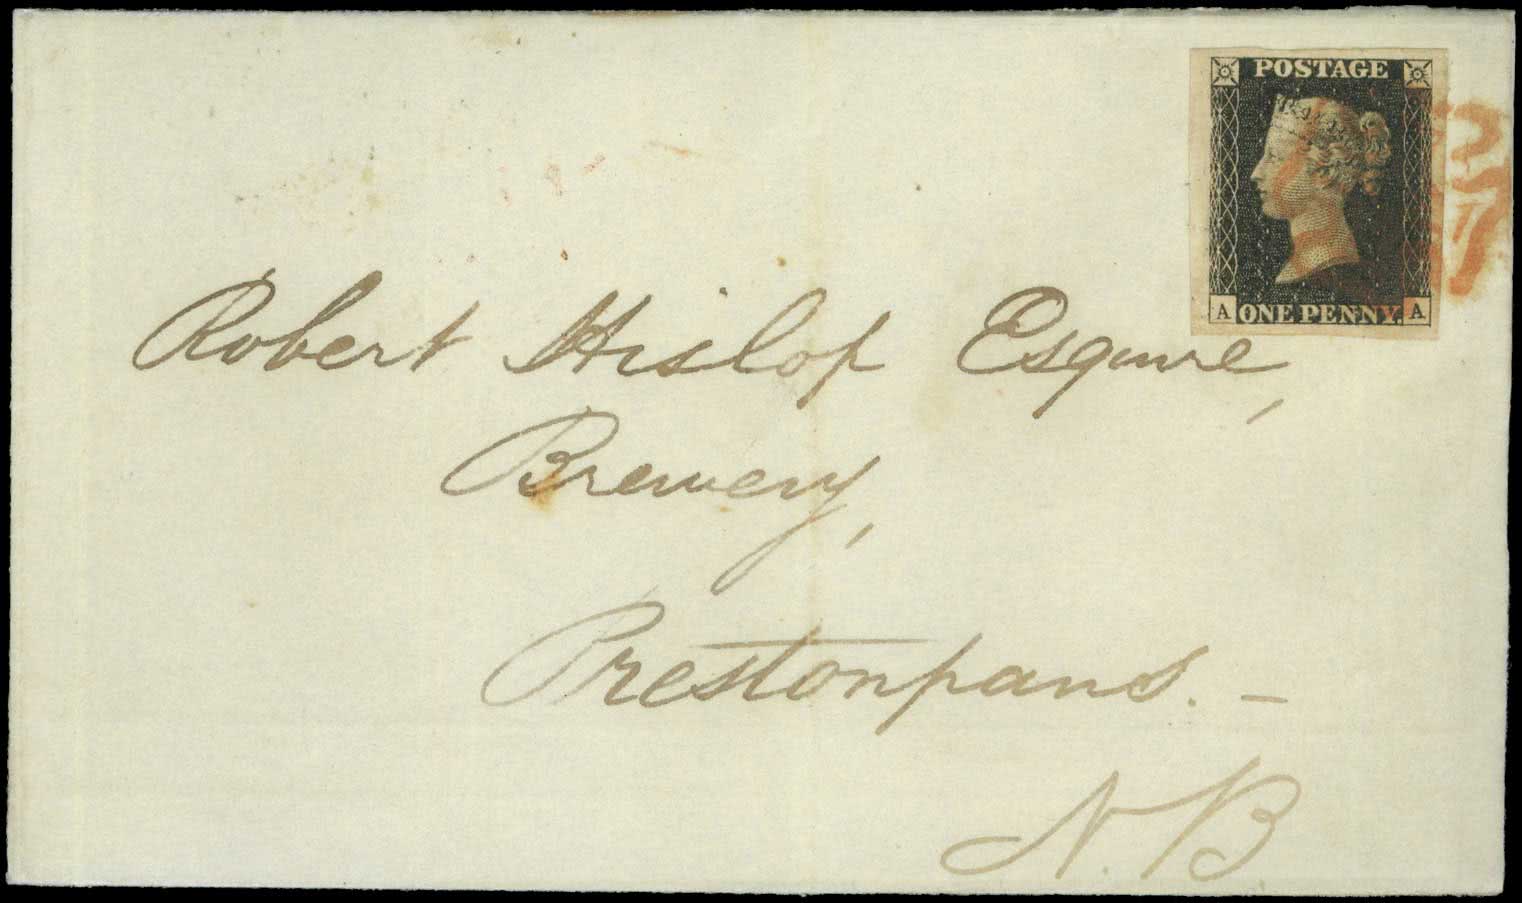 POSTAGE
A ONE PENNY. A
Robert Hislop Esquire,
Brewery,
Prestonpans. –
N.B.